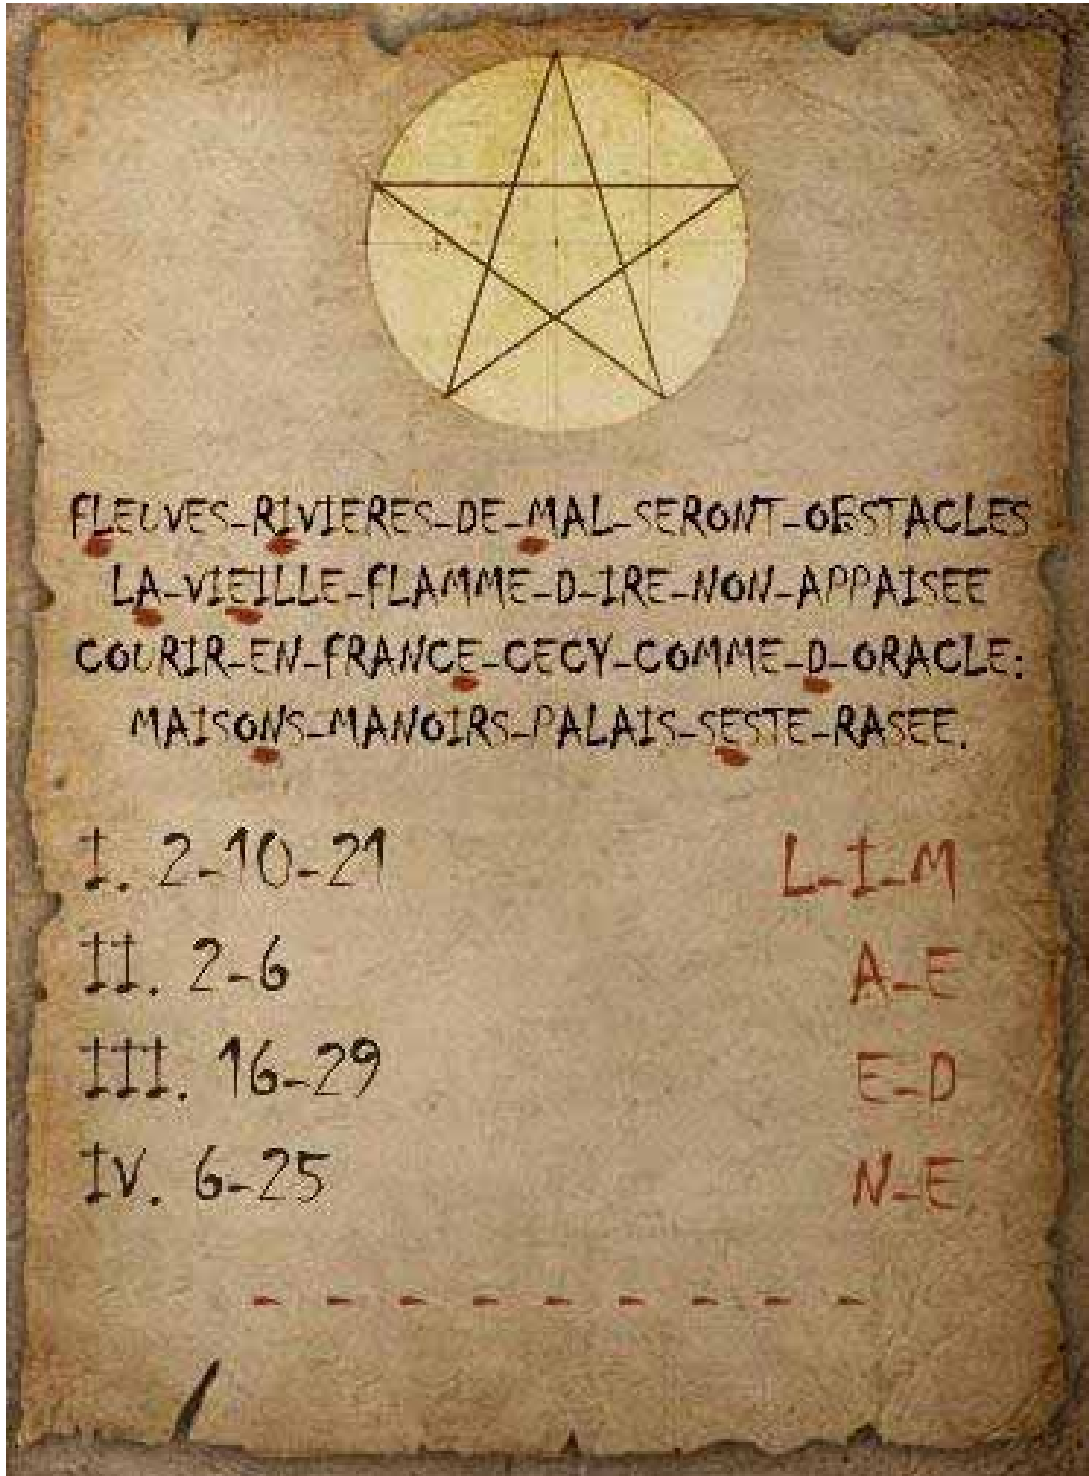 FLEUVES-RIVIERES-DE-MAL-SERONT-OBSTACLES
LA-VIEILLE-FLAMME-D-IRE-NON-APPAISEE
COURIR-EN-FRANCE-CECY-COMME-D-ORACLE:
MAISONS-MANOIRS-PALAIS-SESTE-RASEE.
I. 2-10-21 L-I-M
II. 2-6 A-E
III. 16-29 E-D
IV. 6-25 N-E
- - - - - - - - -